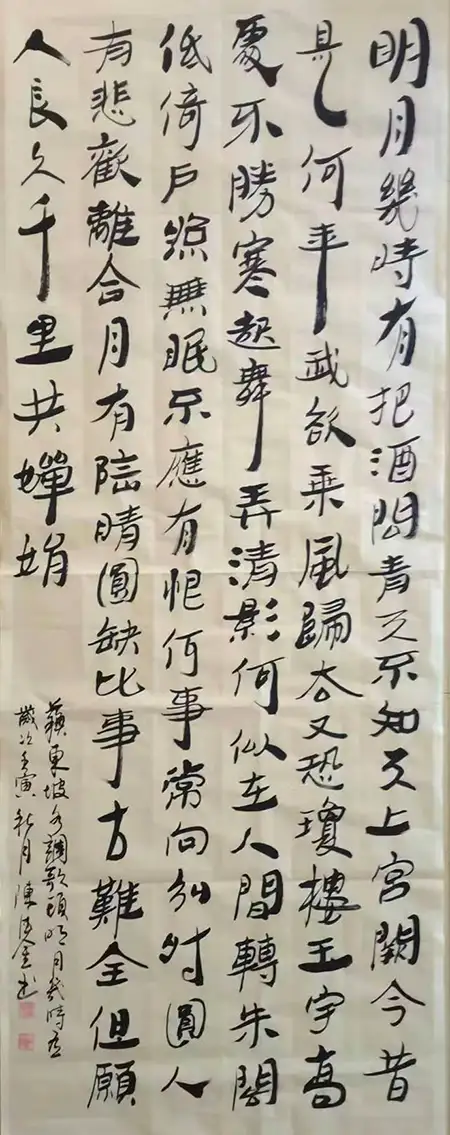 明月幾時有把酒問青天不知天上宮闕今昔
是何年我欲乘風歸去又恐瓊樓玉宇高
處不勝寒起舞弄清影何似在人間轉朱閣
低倚戶照無眠不應有恨何事常向別時圓人
有悲歡離合月有陰晴圓缺此事古難全但願
人長久千里共嬋娟
蘇東坡水調歌頭明月幾時有
歲次壬寅秋月陳金書